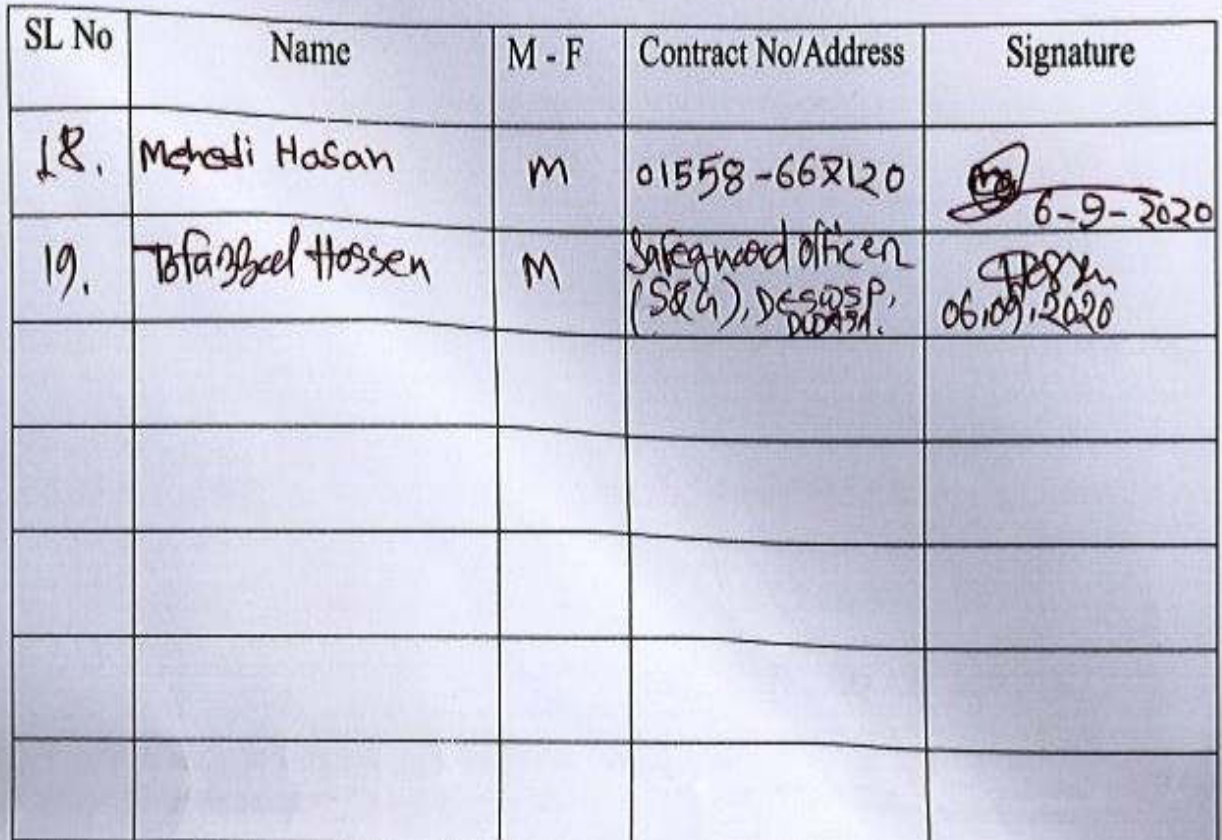 SL No Name M - F Contract No/Address Signature
18. Mehedi Hasan M 01558-668120
6-9-2020
19. Tofazzal Hossen M Safeguard officer Hossen
(S&G), DESWSP, 06.09.2020
DWASA.